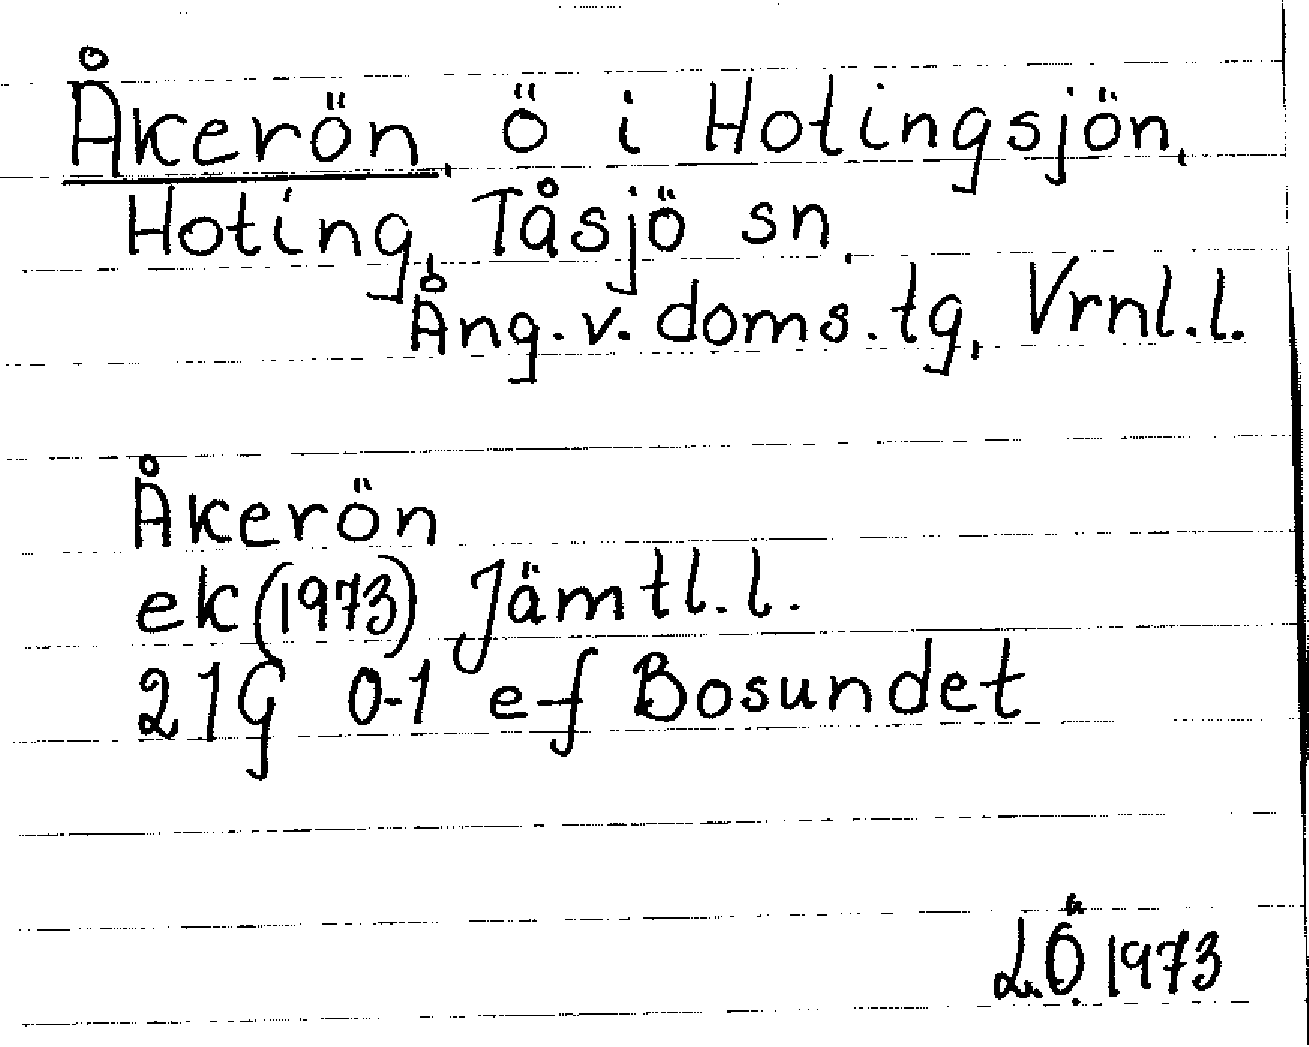 Åkerön, ö i Hotingsjön,
Hoting, Tåsjö sn.
Ång. v. doms. tg, Vrnl. l.
Åkerön
ek (1973) Jämtl. l.
21G 0-1 e-f Bosundet
L.Ö. 1973